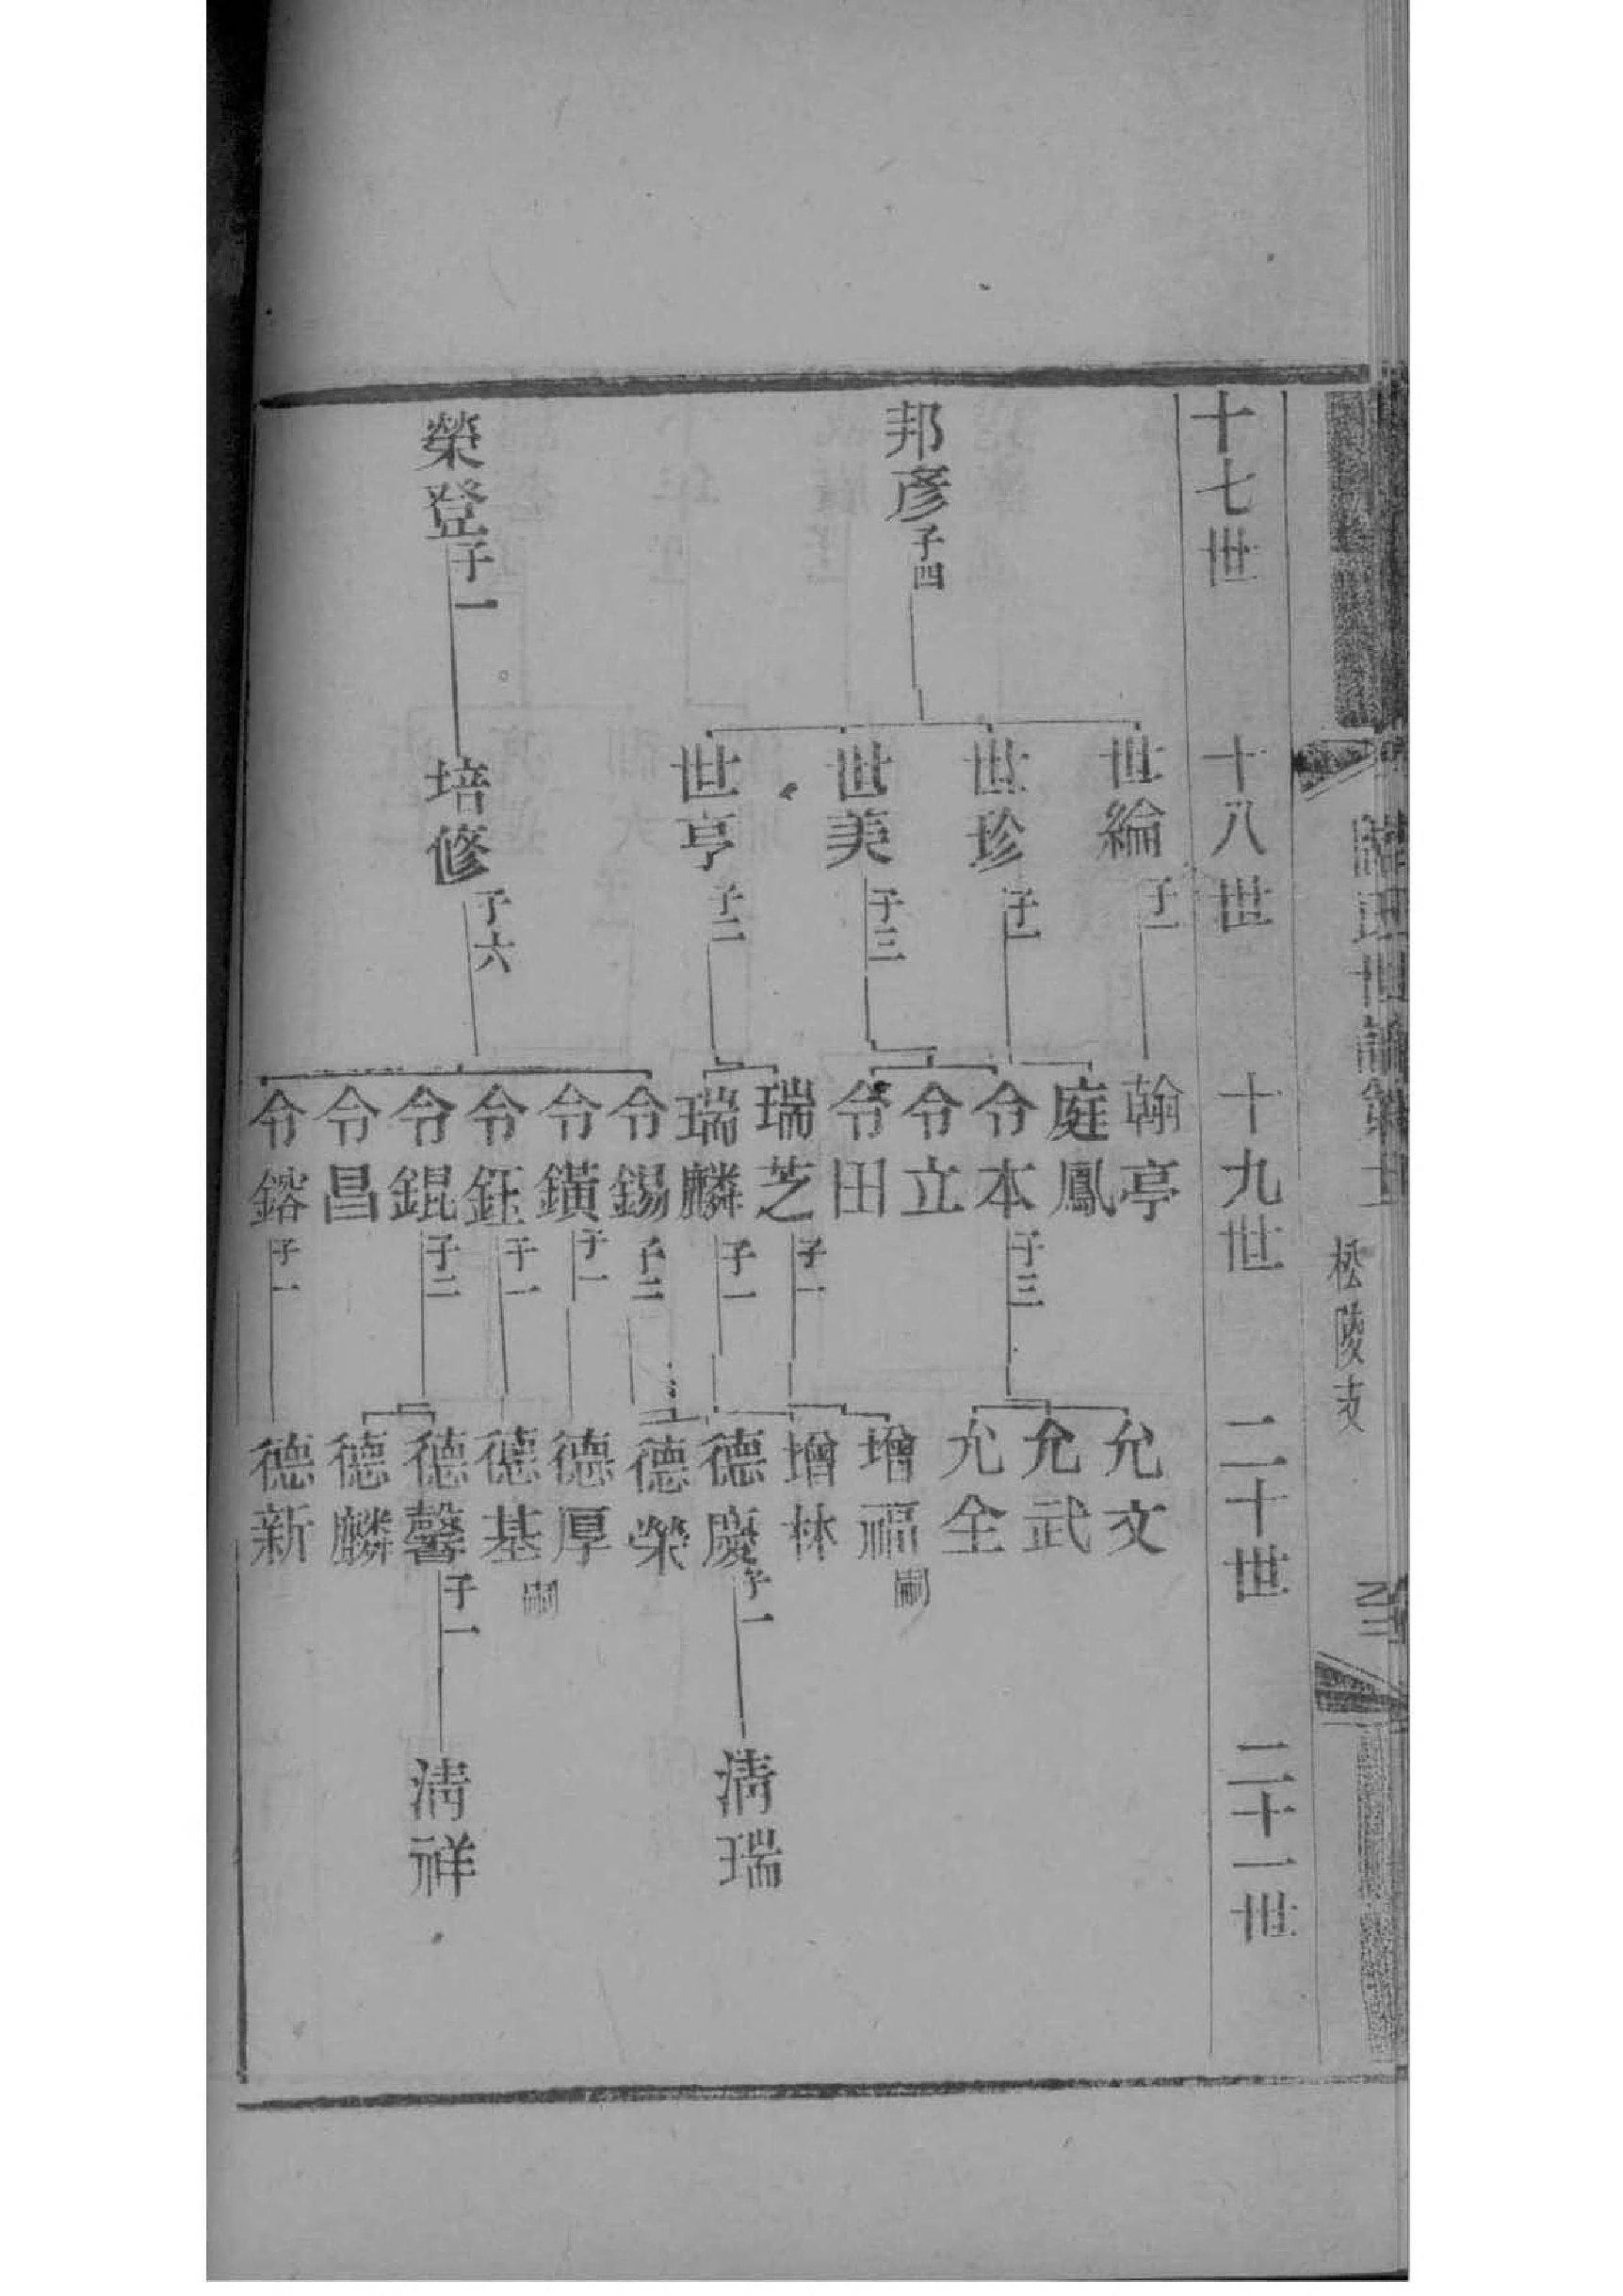 陸氏世譜
松陵支
十七世
十八世
十九世
二十世
二十一世
邦彥子四
榮登子一
世綸子一
世珍子一
世美子三
世亨子二
培修子六
翰亭
庭鳳
令本子三
令立
令田
瑞芝子一
瑞麟子一
令錫子二
令鐄子一
令鈺子一
令錕子二
令昌
令鎔子一
允文
允武
允全
增福嗣
增林
德慶子一
德榮
德厚
德基嗣
德馨子一
德麟
德新
淸瑞
淸祥